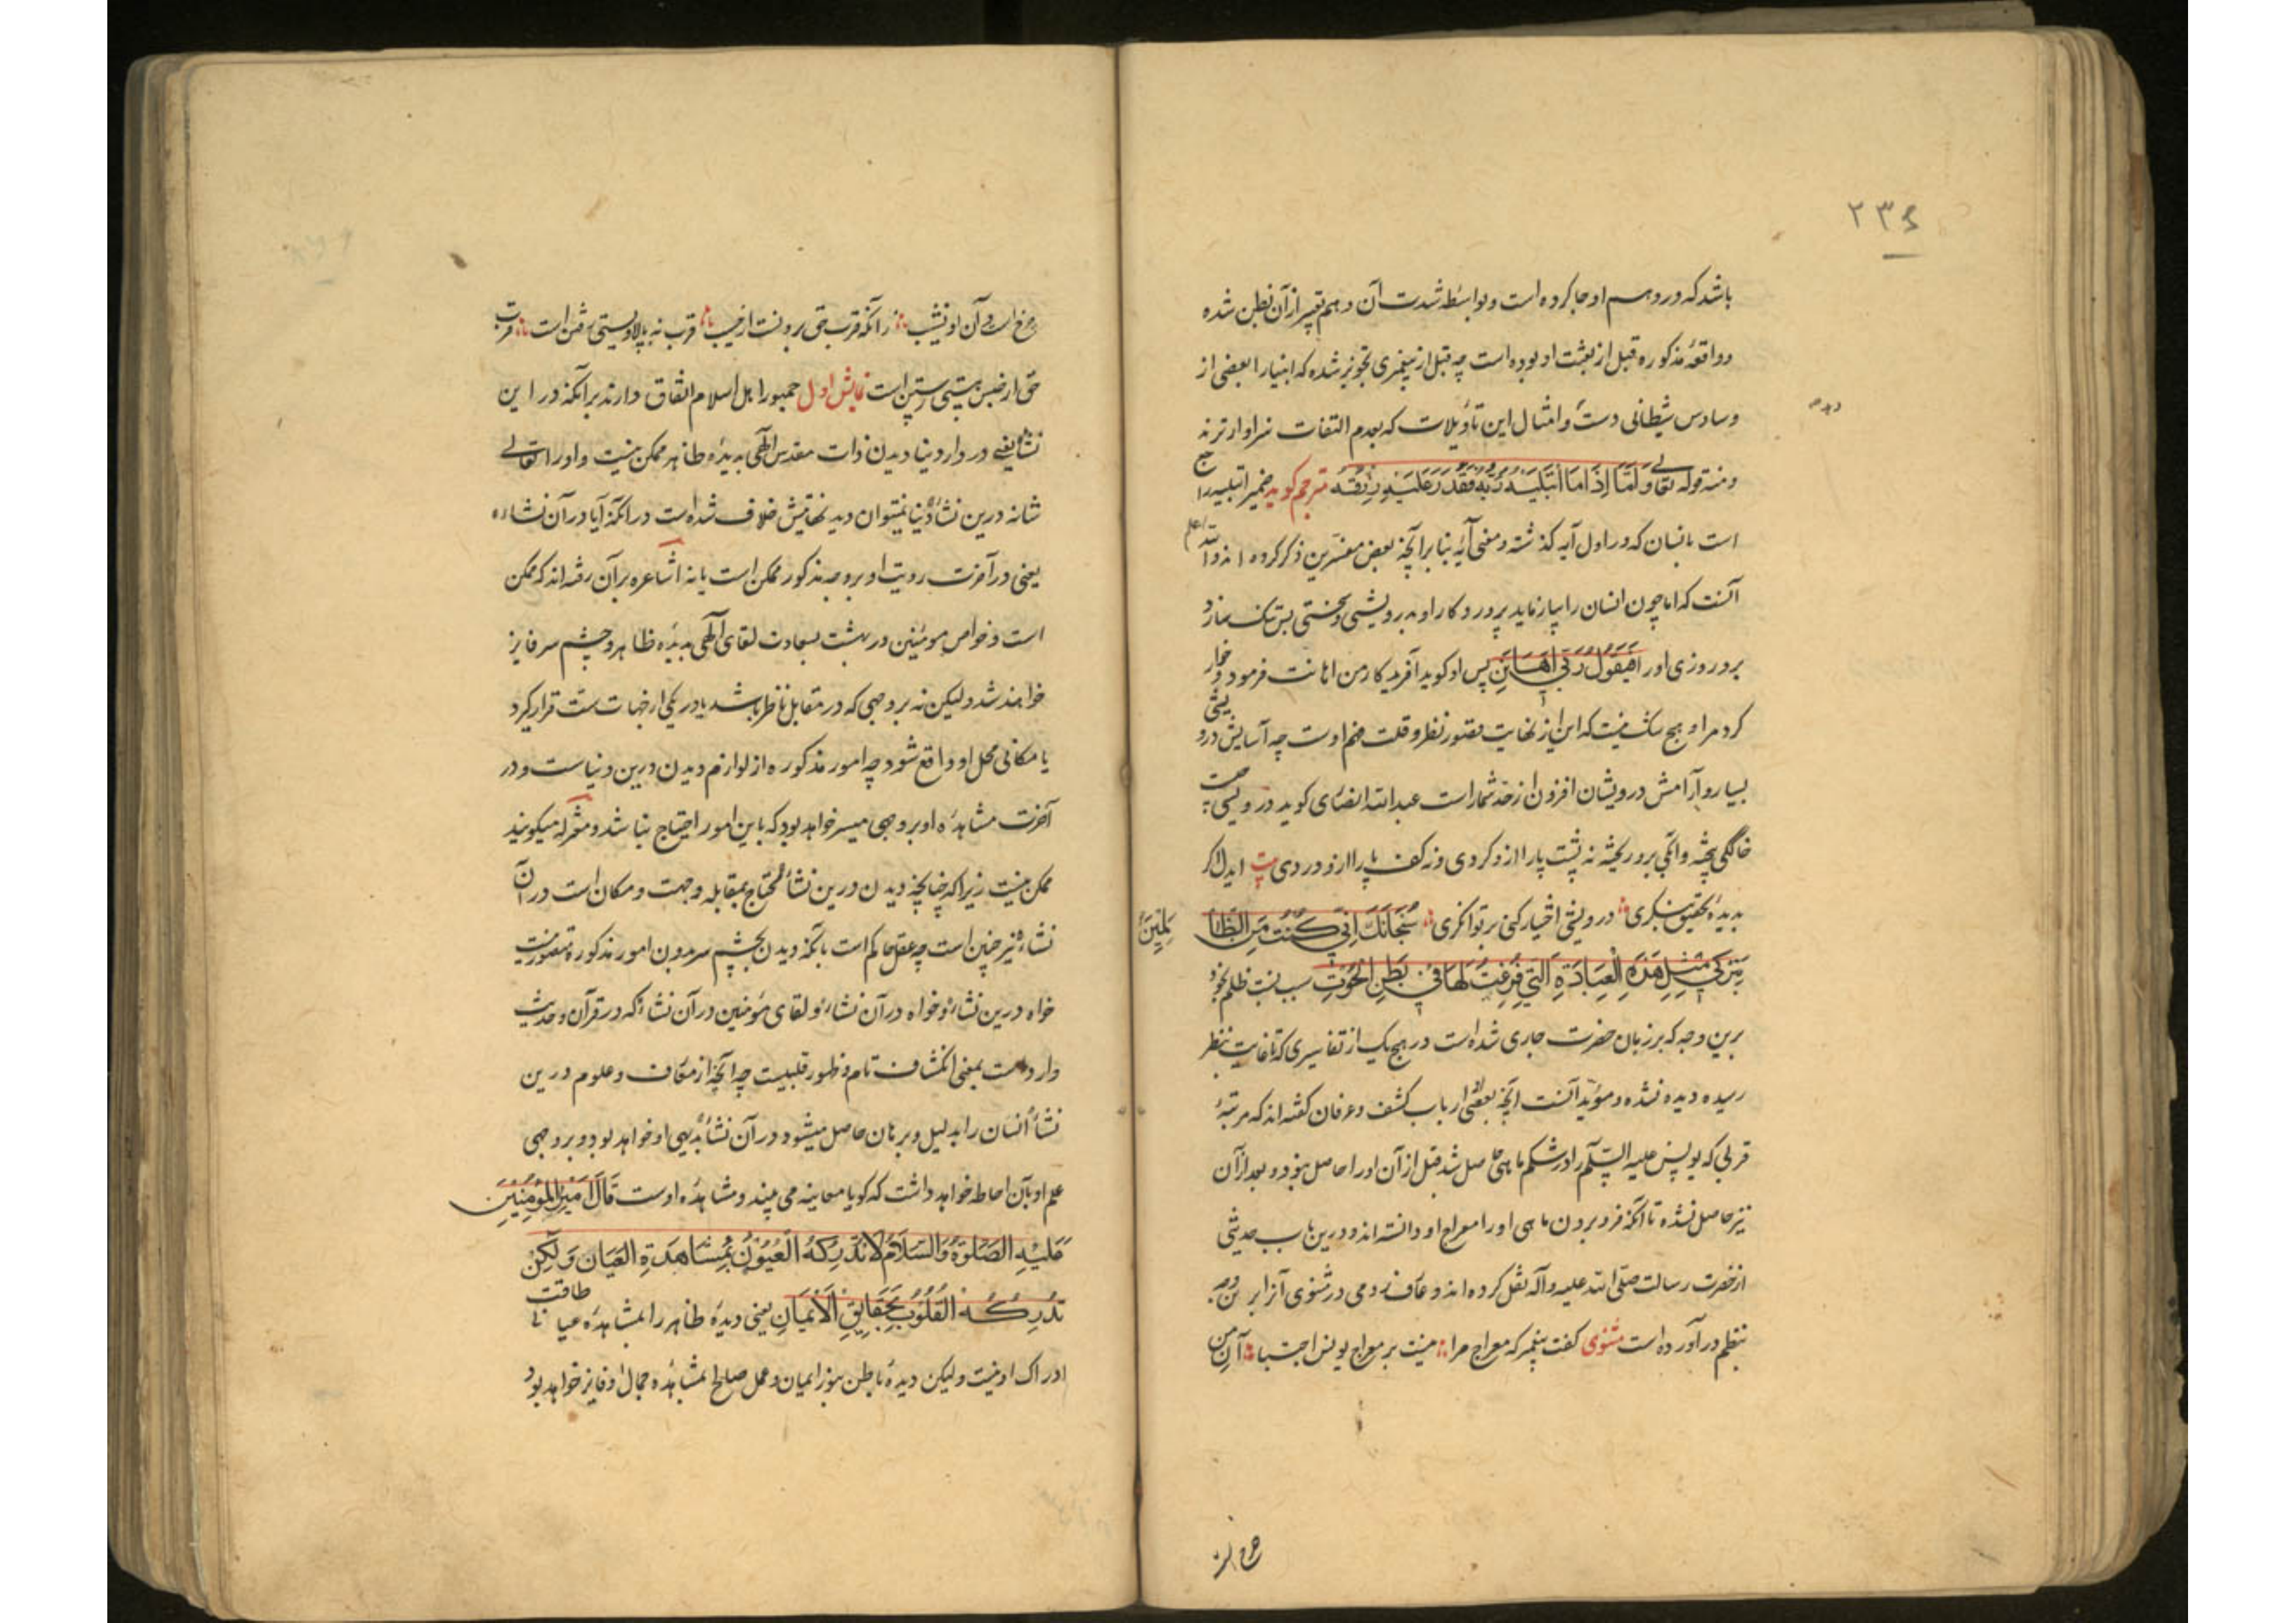 ۲۳۴
باشد که در وهم او جا کرده است و بواسطه شدت آن وهم تعبیر از آن بظن شده
و واقعهٔ مذکوره قبل از بعثت او بوده است چه قبل از پیغمبری تجویز شده که انبیا را بعضی از
وساوس شیطانی دست و امثال این تاویلات که بعدم التفات سزاوارترند
ومنه قوله تعالی وَاَمّا اِذَا مَا ابْتَلَیٰهُ رَبُّهُ فَقَدَرَ عَلَیْهِ رِزْقَهُ مترجم کوید ضمیر ابتلیه راجع
است بانسان که در اول آیه کذشته و معنی آیه بنا بر آنچه بعض مفسرین ذکر کرده اند والله اعلم
آنست که اما چون انسان را بیازماید پروردکار او بدرویشی و سختی پس تنک سازد
برو روزی او را فَیَقُولُ رَبّی اَهَانَنِ پس او کوید آفریدکار من اهانت فرمود و خوار
کرد مرا و هیچ شک نیست که این از نهایت قصور نظر و قلت فهم اوست چه آسایش درویشی
بسیار و آرامش درویشان افزون از حد شمار است عبدالله انصاری کوید درویشی چیست
خاککی بیخته و آبکی برو ریخته نه پشت پا را ازو کردی و نه کف پا را ازو دردی بیت ایدل اکر
بدیدهٔ تحقیق بنکری درویشی اختیار کنی بر توانکری سُبْحَانَكَ اِنّی كُنْتُ مِنَ الظَّالِمِینَ
بِتَرْکی مِثْلَ هٰذِهِ الْعِبَادَةِ الَّتی فَرَّغْتَنی لَهَا فی بَطْنِ الْحُوتِ سبب نسبت ظلم بخود
برین وجه که بر زبان حضرت جاری شده است در هیچ یک از تفاسیری که تا غایت بنظر
رسیده دیده نشده و مؤید آنست آنچه بعضی از ارباب کشف و عرفان کفته اند که مرتبهٔ
قربی که یونس علیه السلام را در شکم ماهی حاصل شد قبل از آن او را حاصل نبود و بعد از آن
نیز حاصل نشده تا آنکه فرو بردن ماهی او را معراج او دانسته اند و درین باب حدیثی
از حضرت رسالت صلی الله علیه وآله نقل کرده اند و عارف رومی در مثنوی آنرا برین وجه
بنظم در آورده است مثنوی کفت پیغمبر که معراج مرا نیست بر معراج یونس اجتبا آن من
چرخ است و آن او نشیب زانکه قرب حق برونست از حسیب قرب نه ببالا و پستی رفتن است قرب
حق از حبس هستی رستن است نمایش اول جمهور اهل اسلام اتفاق دارند برآنکه در این
نشأ یعنی در دار دنیا دیدن ذات مقدس الهی بدیدهٔ ظاهر ممکن نیست و او را تعالی
شانه درین نشأ دنیا نمیتوان دید نهایتش خلاف شده است در آنکه آیا در آن نشاءه
یعنی در آخرت رویت او بر وجه مذکور ممکن است یا نه اشاعره بر آن رفته اند که ممکن
است و خواص مومنین در بهشت بسعادت لقای الهی بدیدهٔ ظاهر و چشم سر فایز
خواهند شد ولیکن نه بر وجهی که در مقابل ناظر باشد یا در یکی از جهات ست قرار کیرد
یا مکانی محل او واقع شود چه امور مذکوره از لوازم دیدن درین دنیاست و در
آخرت مشاهدهٔ او بر وجهی میسر خواهد بود که باین امور احتیاج نباشد و معتزله میکویند
ممکن نیست زیرا که چنانچه دیدن درین نشأ محتاج بمقابله و جهت و مکان است در آن
نشاء نیز چنین است چه عقل حاکم است بآنکه دیدن بچشم سر بدون امور مذکوره متصور نیست
خواه درین نشاء و خواه در آن نشاء و لقای مؤمنین در آن نشاء که در قرآن و حدیث
وارد است بمعنی انکشاف تام و ظهور قلبیست چه آنچه از معارف و علوم درین
نشأ انسان را بدلیل و برهان حاصل میشود در آن نشأ بدیهی او خواهد بود و بر وجهی
علم او بآن احاطه خواهد داشت که کویا معاینه می بیند و مشاهدهٔ اوست قَالَ اَمیرُ الْمُؤْمِنینَ
عَلَیْهِ الصَّلوٰةُ وَالسَّلَامُ لَا تُدْرِكُهُ الْعُیُونُ بِمُشَاهَدَةِ الْعِیَانِ وَلٰكِنْ
تُدْرِكُهُ الْقُلُوبُ بِحَقَایِقِ الْاِیمَانِ یعنی دیدهٔ ظاهر را بمشاهدهٔ عیانی طاقت
ادراک او نیست ولیکن دیدهٔ باطن بنور ایمان و عمل صالح بمشاهدهٔ جمال او فایز خواهد بود
چرخ از